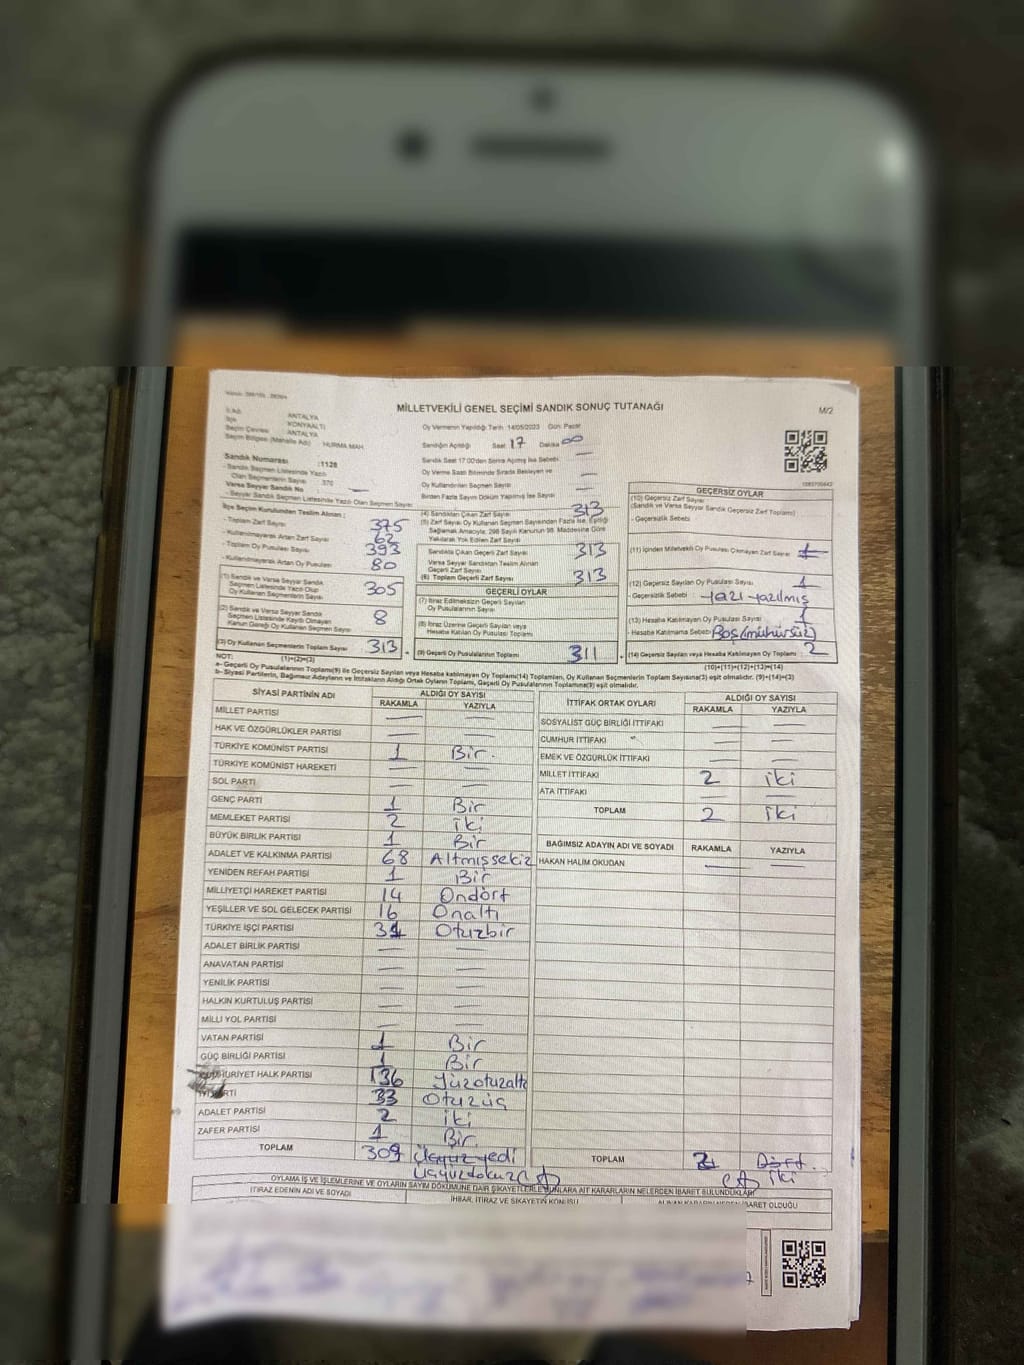 MİLLETVEKİLİ GENEL SEÇİMİ SANDIK SONUÇ TUTANAĞI
M/2
İli Adı ANTALYA
İlçe KONYAALTI
Seçim Çevresi ANTALYA
Seçim Bölgesi (Mahalle Adı) HURMA MAH.
Sandık Numarası :1128
- Sandık Seçmen Listesinde Yazılı
Olan Seçmenlerin Sayısı 370
Varsa Seyyar Sandık No —
- Seyyar Sandık Seçmen Listesinde Yazılı Olan Seçmen Sayısı
Oy Vermenin Yapıldığı Tarih :14/05/2023 Gün: Pazar
Sandığın Açıldığı Saat 17 Dakika 00
Sandık Saat 17:00'den Sonra Açılmış İse Sebebi —
Oy Verme Saati Bitiminde Sırada Bekleyen ve
Oy Kullandırılan Seçmen Sayısı —
Birden Fazla Sayım Döküm Yapılmış İse Sayısı —
İlçe Seçim Kurulundan Teslim Alınan ;
- Toplam Zarf Sayısı 375
- Kullanılmayarak Artan Zarf Sayısı 62
- Toplam Oy Pusulası Sayısı 393
- Kullanılmayarak Artan Oy Pusulası 80
(1) Sandık ve Varsa Seyyar Sandık
Seçmen Listesinde Yazılı Olup
Oy Kullanan Seçmenlerin Sayısı 305
(2) Sandık ve Varsa Seyyar Sandık
Seçmen Listesinde Kayıtlı Olmayan
Kanun Gereği Oy Kullanan Seçmen Sayısı 8
(3) Oy Kullanan Seçmenlerin Toplam Sayısı 313
(1)+(2)=(3)
(4) Sandıktan Çıkan Zarf Sayısı 313
(5) Zarf Sayısı Oy Kullanan Seçmen Sayısından Fazla İse, Eşitliği
Sağlamak Amacıyla, 298 Sayılı Kanunun 98. Maddesine Göre
Yakılarak Yok Edilen Zarf Sayısı
Sandıkta Çıkan Geçerli Zarf Sayısı 313
Varsa Seyyar Sandıktan Teslim Alınan
Geçerli Zarf Sayısı
(6) Toplam Geçerli Zarf Sayısı 313
GEÇERLİ OYLAR
(7) İtiraz Edilmeksizin Geçerli Sayılan
Oy Pusulalarının Sayısı
(8) İtiraz Üzerine Geçerli Sayılan veya
Hesaba Katılan Oy Pusulası Toplamı
(9) Geçerli Oy Pusulalarının Toplamı 311
GEÇERSİZ OYLAR
(10) Geçersiz Zarf Sayısı
(Sandık ve Varsa Seyyar Sandık Geçersiz Zarf Toplamı)
- Geçersizlik Sebebi
(11) İçinden Milletvekili Oy Pusulası Çıkmayan Zarf Sayısı
(12) Geçersiz Sayılan Oy Pusulası Sayısı 1
- Geçersizlik Sebebi : yazı yazılmış
(13) Hesaba Katılmayan Oy Pusulası Sayısı 1
Hesaba Katılmama Sebebi Boş(mühürsüz)
(14) Geçersiz Sayılan veya Hesaba Katılmayan Oy Toplamı : 2
(10)+(11)+(12)+(13)=(14)
NOT:
a- Geçerli Oy Pusulalarının Toplamı(9) ile Geçersiz Sayılan veya Hesaba katılmayan Oy Toplamı(14) Toplamları, Oy Kullanan Seçmenlerin Toplam Sayısına(3) eşit olmalıdır. (9)+(14)=(3)
b- Siyasi Partilerin, Bağımsız Adayların ve İttifakların Aldığı Ortak Oyların Toplamı, Geçerli Oy Pusulalarının Toplamına(9) eşit olmalıdır.
SİYASİ PARTİNİN ADI ALDIĞI OY SAYISI
RAKAMLA YAZIYLA
MİLLET PARTİSİ — —
HAK VE ÖZGÜRLÜKLER PARTİSİ — —
TÜRKİYE KOMÜNİST PARTİSİ 1 Bir.
TÜRKİYE KOMÜNİST HAREKETİ — —
SOL PARTİ — —
GENÇ PARTİ 1 Bir
MEMLEKET PARTİSİ 2 iki
BÜYÜK BİRLİK PARTİSİ 1 Bir
ADALET VE KALKINMA PARTİSİ 68 Altmışsekiz
YENİDEN REFAH PARTİSİ 1 Bir
MİLLİYETÇİ HAREKET PARTİSİ 14 Ondört
YEŞİLLER VE SOL GELECEK PARTİSİ 16 Onaltı
TÜRKİYE İŞÇİ PARTİSİ 31 Otuzbir
ADALET BİRLİK PARTİSİ — —
ANAVATAN PARTİSİ — —
YENİLİK PARTİSİ — —
HALKIN KURTULUŞ PARTİSİ — —
MİLLİ YOL PARTİSİ — —
VATAN PARTİSİ 1 Bir
GÜÇ BİRLİĞİ PARTİSİ 1 Bir
CUMHURİYET HALK PARTİSİ 136 Yüzotuzaltı
33 Otuzüç
ADALET PARTİSİ 2 iki
ZAFER PARTİSİ 1 Bir.
TOPLAM 309 Üçyüz yedi
Üçyüzdokuz
İTTİFAK ORTAK OYLARI ALDIĞI OY SAYISI
RAKAMLA YAZIYLA
SOSYALİST GÜÇ BİRLİĞİ İTTİFAKI — —
CUMHUR İTTİFAKI — —
EMEK VE ÖZGÜRLÜK İTTİFAKI — —
MİLLET İTTİFAKI 2 iki
ATA İTTİFAKI — —
TOPLAM 2 iki
BAĞIMSIZ ADAYIN ADI VE SOYADI RAKAMLA YAZIYLA
HAKAN HALİM OKUDAN — —
TOPLAM 2 Dört.
iki
OYLAMA İŞ VE İŞLEMLERİNE VE OYLARIN SAYIM DÖKÜMÜNE DAİR ŞİKAYETLERLE BUNLARA AİT KARARLARIN NELERDEN İBARET BULUNDUKLARI
İTİRAZ EDENİN ADI VE SOYADI
İHBAR, İTİRAZ VE ŞİKAYETİN KONUSU